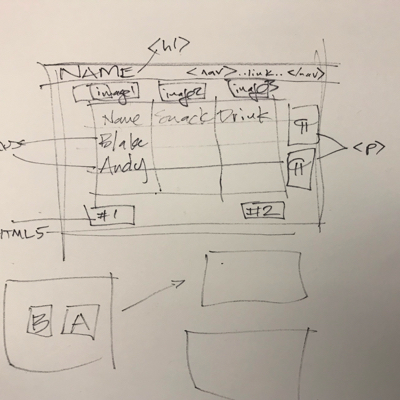 <h1>
NAME <nav>..link..</nav>
image1 image2 image3
Name Snack Drink
Blake
Andy
¶
¶
<p>
#1 #2
HTML5
B A